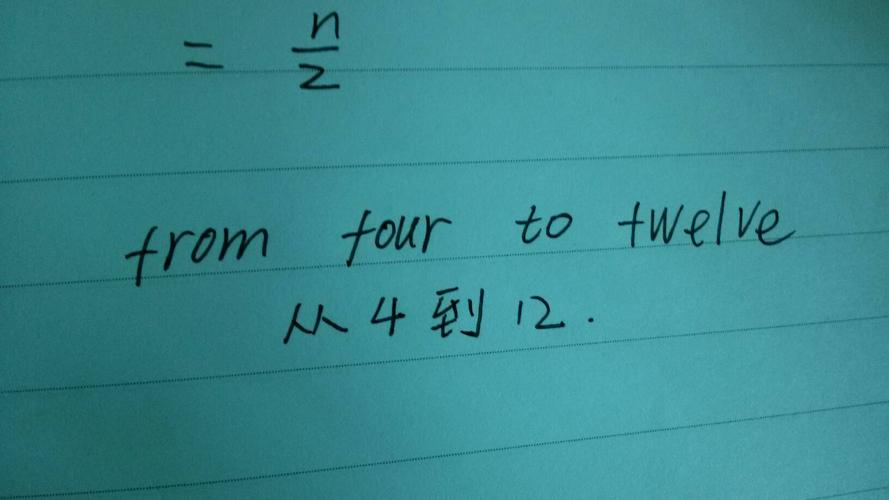 = n/2
from four to twelve
从4到12.